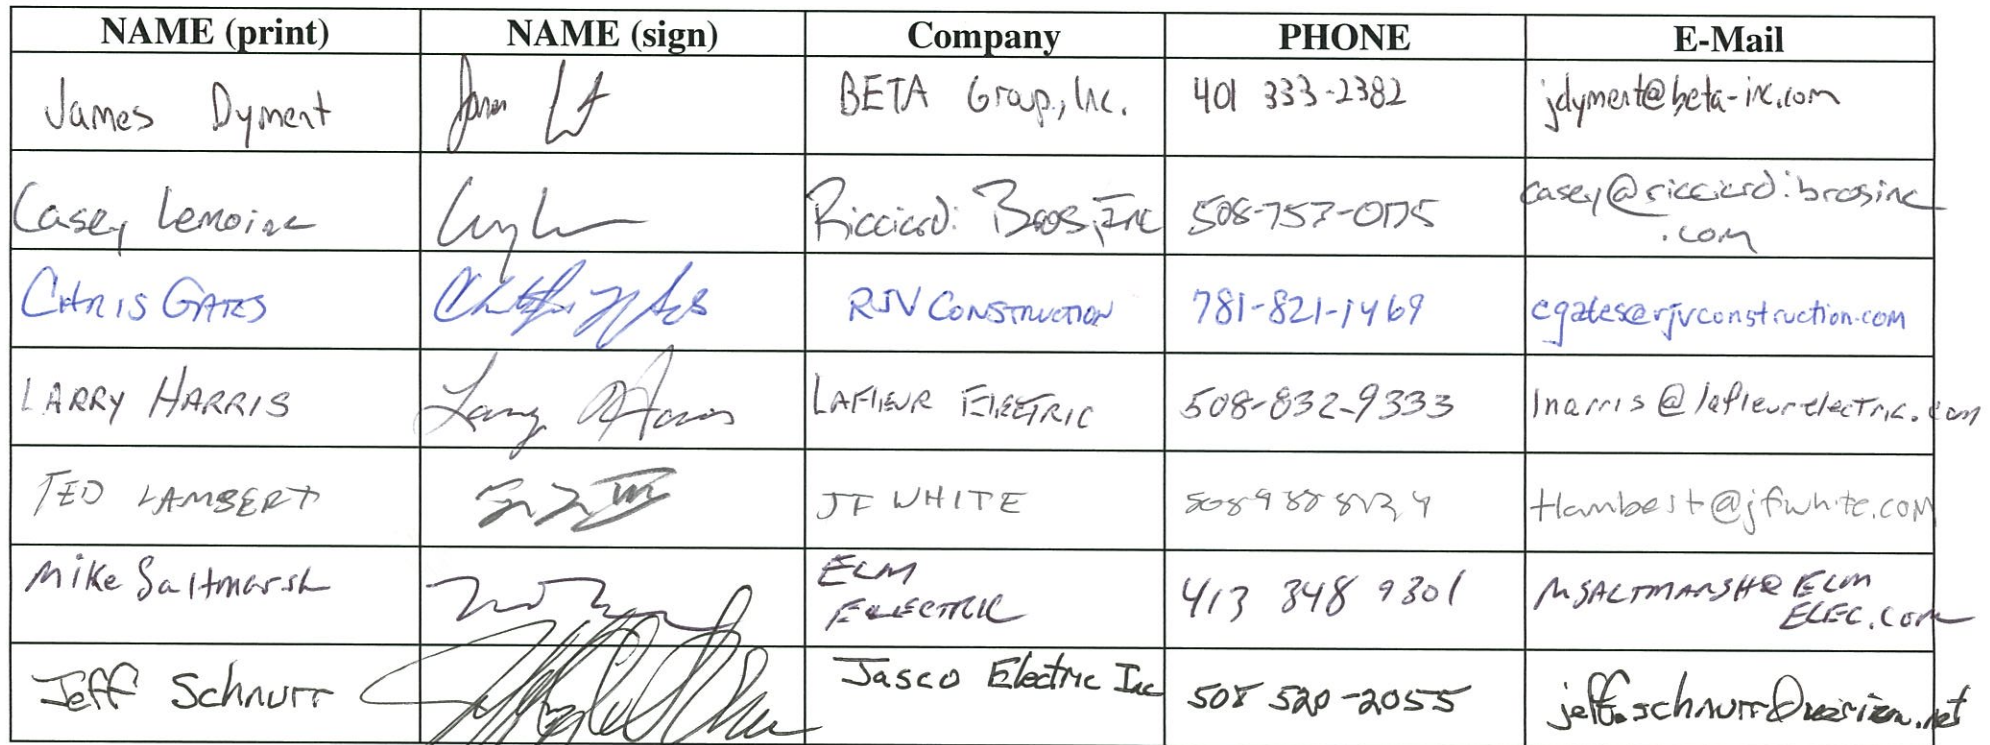 NAME (print) NAME (sign) Company PHONE E-Mail
James Dyment BETA Group, Inc. 401 333-2382 jdyment@beta-inc.com
Casey Lemoine Ricciardi Bros, Inc 508-757-0175 casey@ricciardibrosinc
.com
CHRIS GATES RJV CONSTRUCTION 781-821-1469 cgates@rjvconstruction.com
LARRY HARRIS Larry Harris LAFLEUR ELECTRIC 508-832-9333 lharris@lafleurelectric.com
TED LAMBERT JF WHITE tlambert@jfwhite.com
Mike Saltmarsh ELM
ELECTRIC 413 348 9301 MSALTMARSH@ELM
ELEC.COM
Jeff Schnurr Jasco Electric Inc 508 520-2055 jeff.schnurr@verizon.net